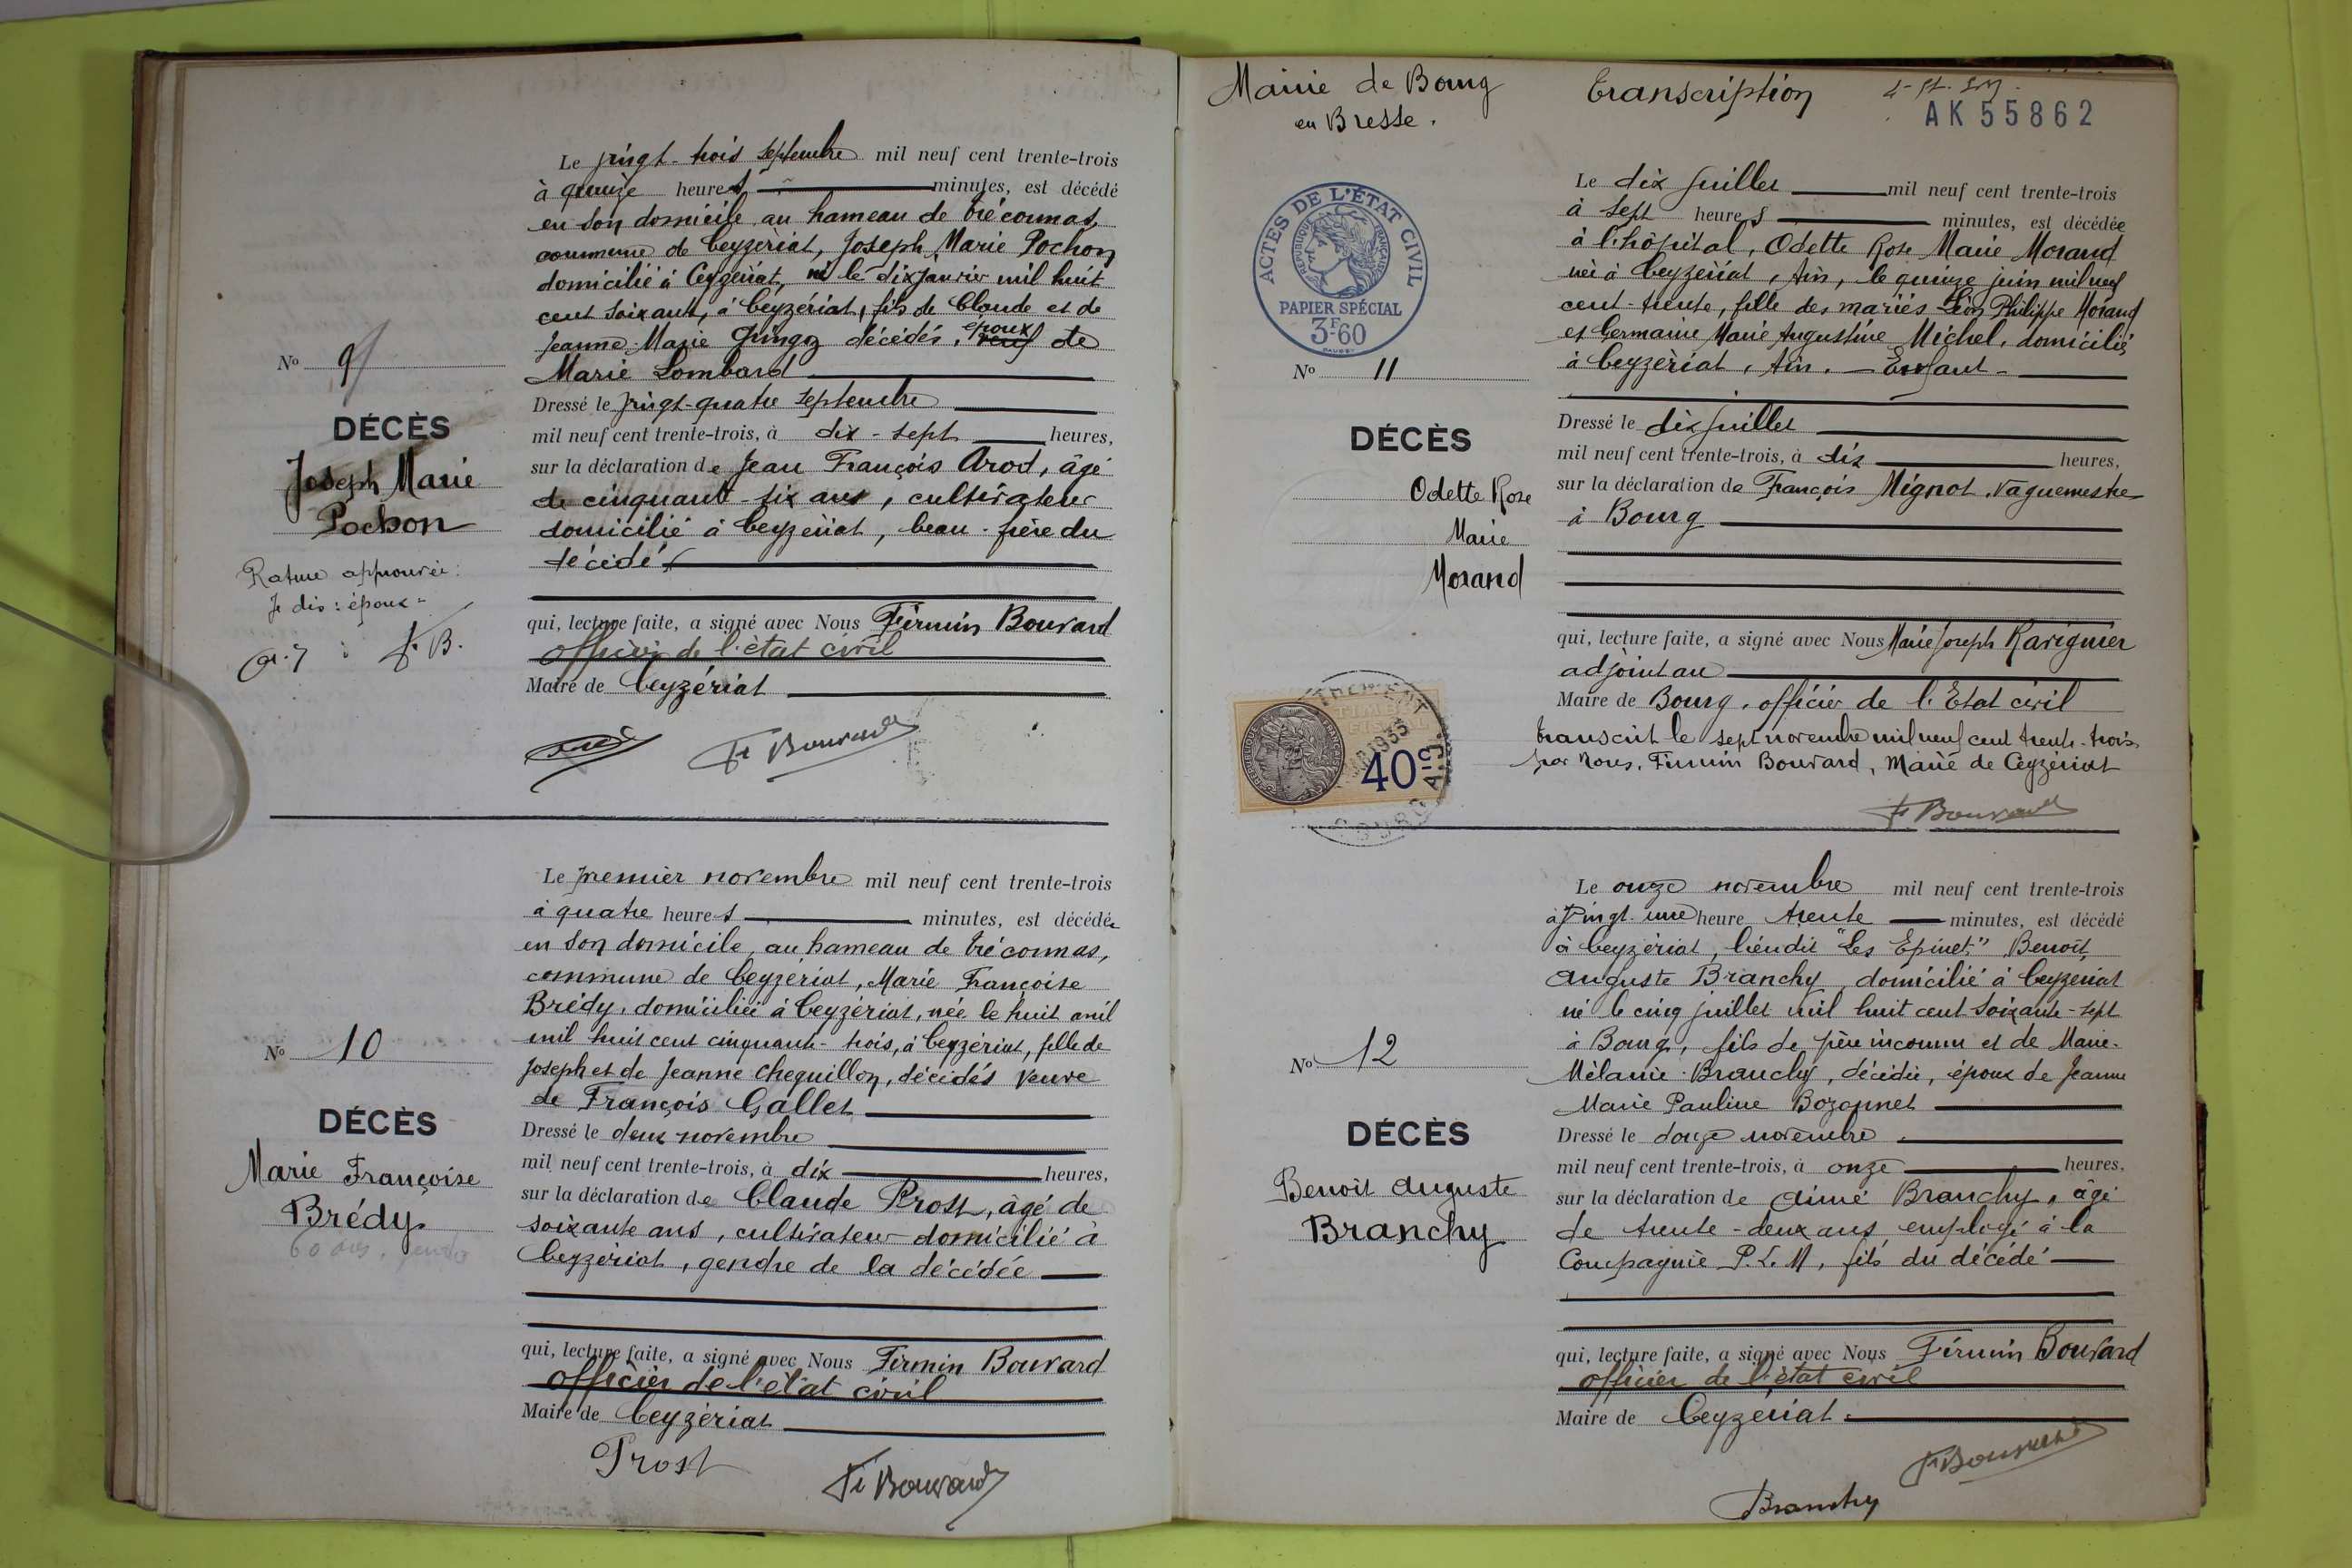 Le vingt-trois septembre mil neuf cent trente-trois
à quinze heures minutes, est décédé
en son domicile au hameau de Tréconnas,
commune de Ceyzériat, Joseph Marie Pochon
domicilié à Ceyzériat, né le dix janvier mil huit
cent soixante, à Ceyzériat, fils de Claude et de
Jeanne-Marie décédés, époux veuf de
Marie Lombard
Dressé le vingt-quatre septembre
mil neuf cent trente-trois, à dix-sept heures,
sur la déclaration de Jean François Arod, âgé
de cinquante-six ans, cultivateur
domicilié à Ceyzériat, beau-frère du
décédé
qui, lecture faite, a signé avec Nous Firmin Bouvard
officier de l'état civil
Maire de Ceyzériat
Fi Bouvard
No 9
DÉCÈS
Joseph Marie
Pochon
Rature approuvée:
Je dis: époux
f. B.
Le premier novembre mil neuf cent trente-trois
à quatre heures minutes, est décédée
en son domicile, au hameau de Tréconnas,
commune de Ceyzériat, Marie Françoise
Brédy, domiciliée à Ceyzériat, née le huit avril
mil huit cent cinquante-trois, à Ceyzériat, fille de
Joseph et de Jeanne Cheguillon, décédés veuve
de François Gallet
Dressé le deux novembre
mil neuf cent trente-trois, à dix heures,
sur la déclaration de Claude Prost, âgé de
soixante ans, cultivateur domicilié à
Ceyzériat, gendre de la décédée
qui, lecture faite, a signé avec Nous Firmin Bouvard
officier de l'état civil
Maire de Ceyzériat
Prost
Fi Bouvard
No 10
DÉCÈS
Marie Françoise
Brédy
Mairie de Bourg
en Bresse.
Transcription
AK 55862
ACTES DE L'ÉTAT CIVIL
RÉPUBLIQUE FRANÇAISE
PAPIER SPÉCIAL
3F60
No 11
DÉCÈS
Odette Rose
Marie
Morand
Le dix juillet mil neuf cent trente-trois
à sept heures minutes, est décédée
à l'hôpital, Odette Rose Marie Morand
née à Ceyzériat, Ain, le quinze juin mil neuf
cent-trente, fille des mariés Léon Philippe Morand
et Germaine Marie Augustine Michel, domiciliés
à Ceyzériat, Ain. - Enfant -
Dressé le dix juillet
mil neuf cent trente-trois, à dix heures,
sur la déclaration de François Mignot, vaguemestre
à Bourg
qui, lecture faite, a signé avec Nous Marie Joseph Ravignier
adjoint au
Maire de Bourg, officier de l'Etat civil
Transcrit le sept novembre mil neuf cent trente-trois
par Nous, Firmin Bouvard, Maire de Ceyzériat
Fi Bouvard
1933
40c
No 12
DÉCÈS
Benoît Auguste
Branchy
Le onze novembre mil neuf cent trente-trois
à vingt-une heure trente minutes, est décédé
à Ceyzériat, lieudit "Les Epinet" Benoît
Auguste Branchy, domicilié à Ceyzériat
né le cinq juillet mil huit cent soixante-sept
à Bourg, fils de père inconnu et de Marie-
Mélanie Branchy, décédée, époux de Jeanne
Marie Pauline Bozonnet
Dressé le douze novembre
mil neuf cent trente-trois, à onze heures,
sur la déclaration de Aimé Branchy, âgé
de trente-deux ans, employé à la
Compagnie P.L.M, fils du décédé
qui, lecture faite, a signé avec Nous Firmin Bouvard
officier de l'état civil
Maire de Ceyzériat
Fi Bouvard
Branchy